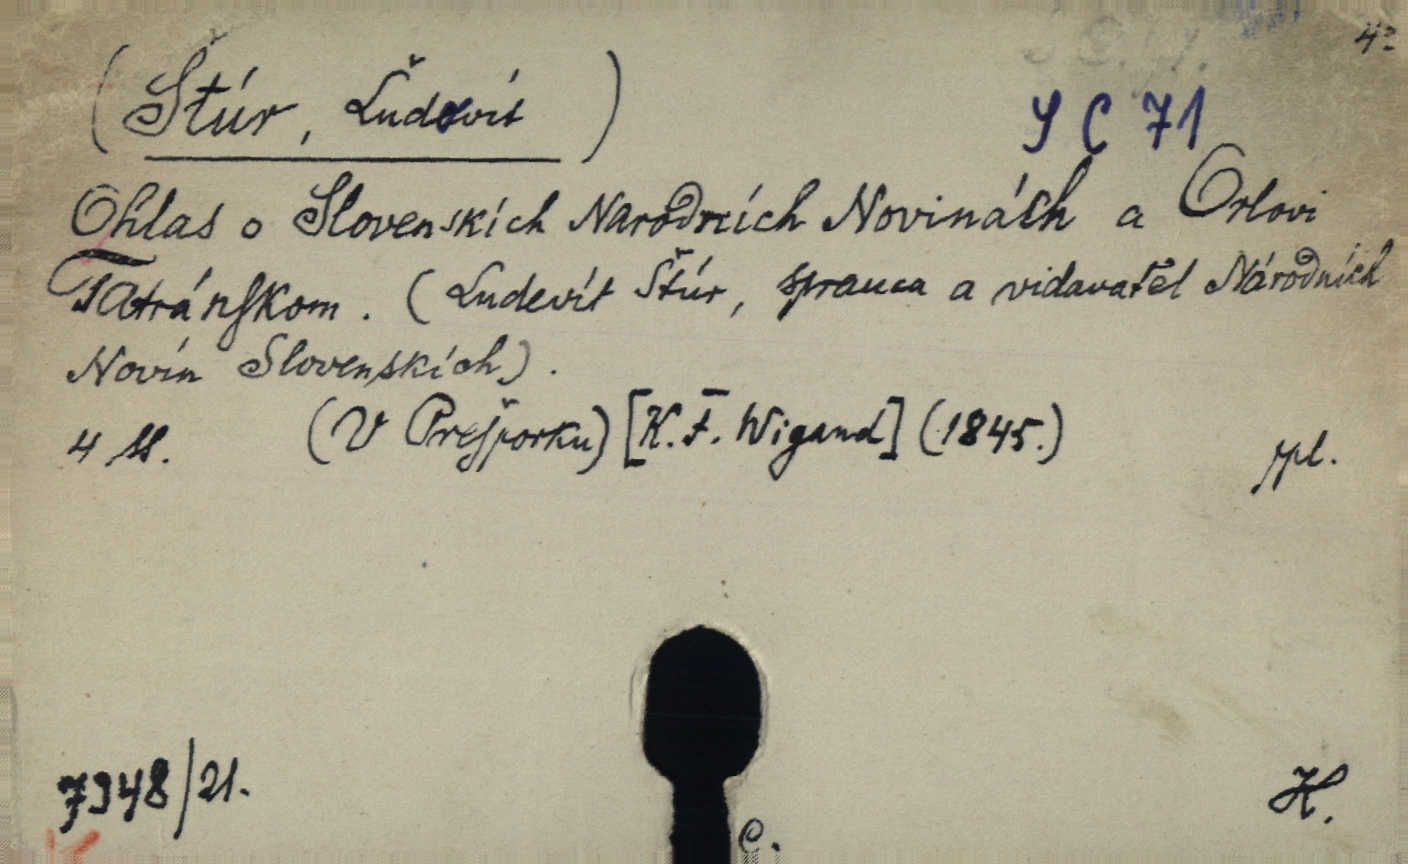 4°
(Štúr, Ľudovít)
S C 71
Ohlas o Slovenskích Narodních Novinách a Orlovi
Tatránskom. (Ludevít Štúr, sprauca a vidavaťel Národních
Novín Slovenskích).
4 ll. (V Prešporku) [K. F. Wigand] (1845.)
7948/21.
H.
C.